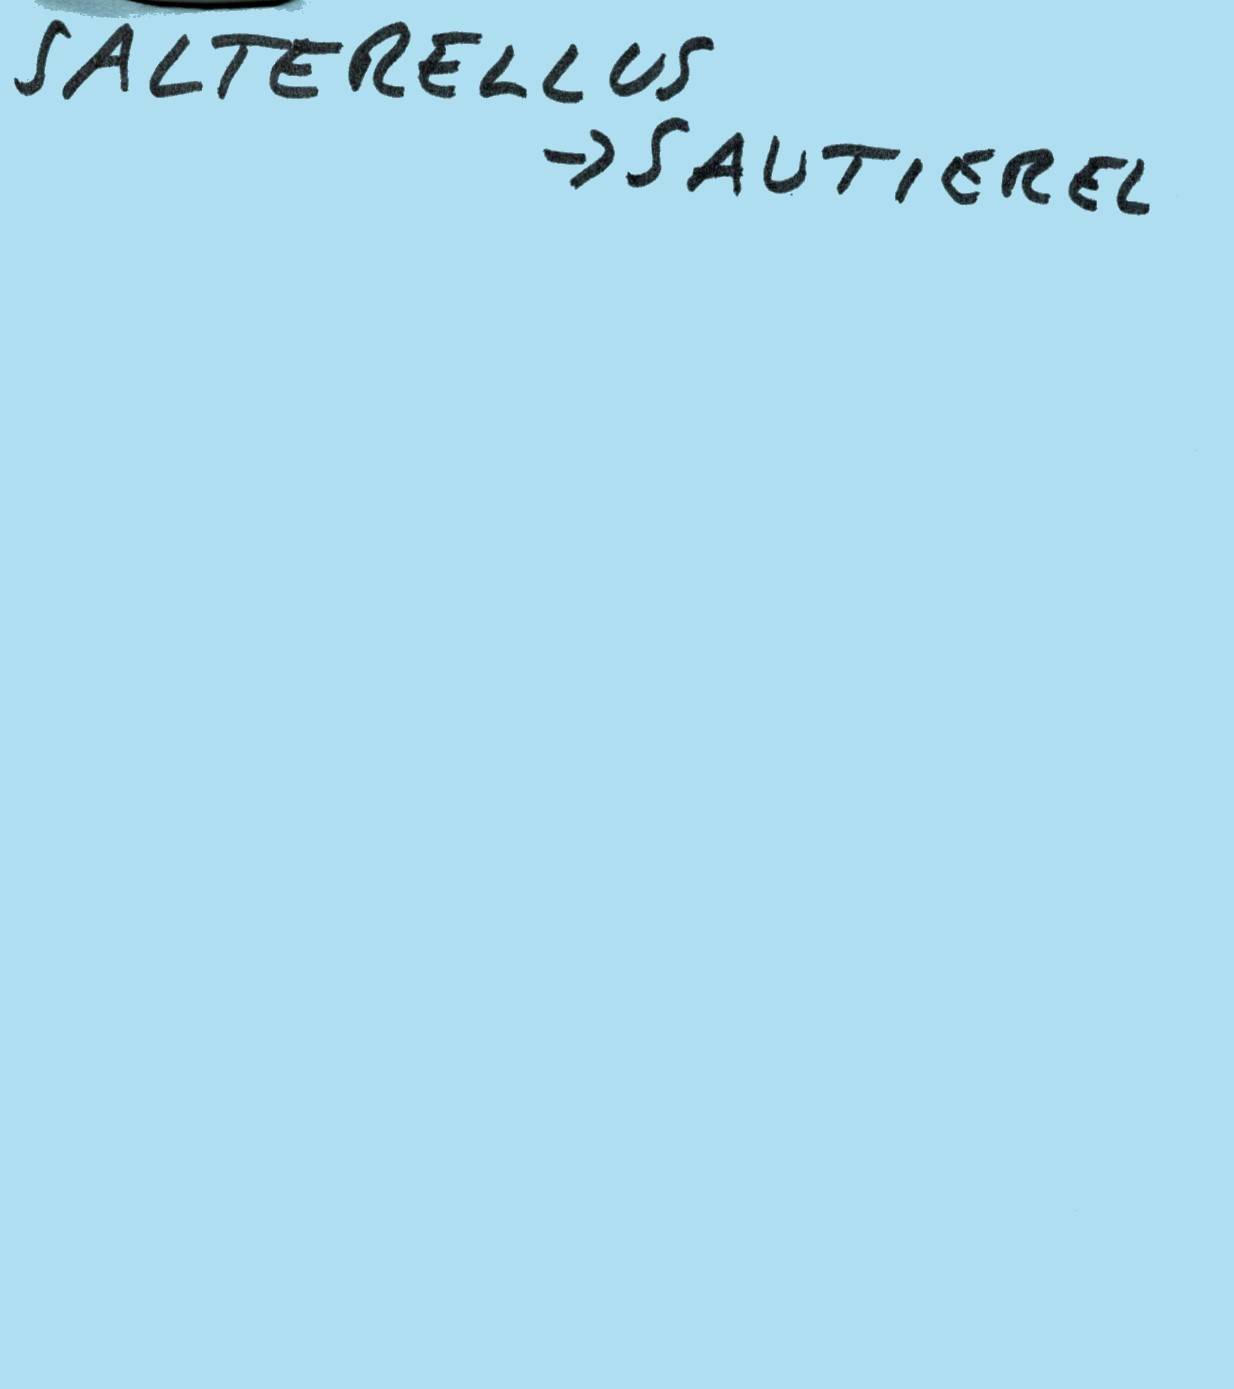 SALTERELLUS
→ SAUTIEREL